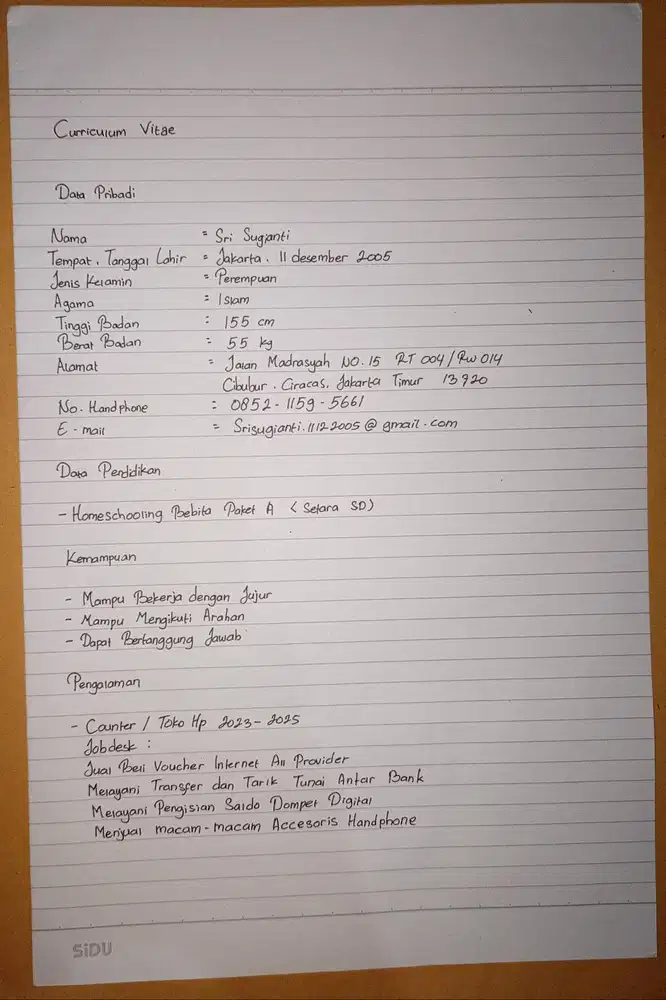 Curriculum Vitae
Data Pribadi
Nama = Sri Sugianti
Tempat, Tanggal Lahir = Jakarta, 11 desember 2005
Jenis Kelamin = Perempuan
Agama = Islam
Tinggi Badan : 155 cm
Berat Badan : 55 kg
Alamat = Jalan Madrasyah NO.15 RT 004/RW 014
Cibubur, Ciracas, Jakarta Timur 13920
No. Handphone : 0852-1159-5661
E-mail = Srisugianti.11122005@gmail.com
Data Pendidikan
- Homeschooling Bebita Paket A (Setara SD)
Kemampuan
- Mampu Bekerja dengan Jujur
- Mampu Mengikuti Arahan
- Dapat Bertanggung Jawab
Pengalaman
- Counter / Toko Hp 2023-2025
Jobdesk :
Jual Beli Voucher Internet All Provider
Melayani Transfer dan Tarik Tunai Antar Bank
Melayani Pengisian Saldo Dompet Digital
Menjual macam-macam Accesoris Handphone
SiDU